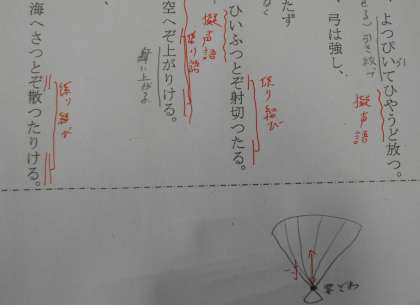 、よつぴいてひやうど放つ。
引き絞って
擬声語
、弓は強し、
たず
ひいふつとぞ射切つたる。
擬声語
係り結び
空へぞ上がりける。
係り結び
舞い上がる
海へさつとぞ散つたりける。
係り結び